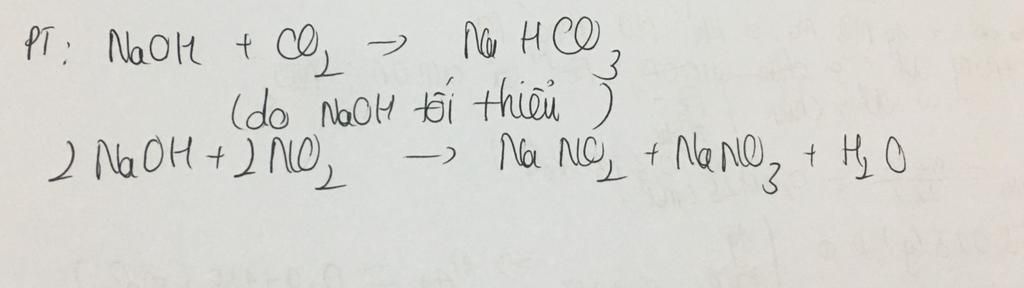 PT: NaOH + CO₂ → NaHCO₃
(do NaOH tối thiểu)
2NaOH + 2NO₂ → NaNO₂ + NaNO₃ + H₂O